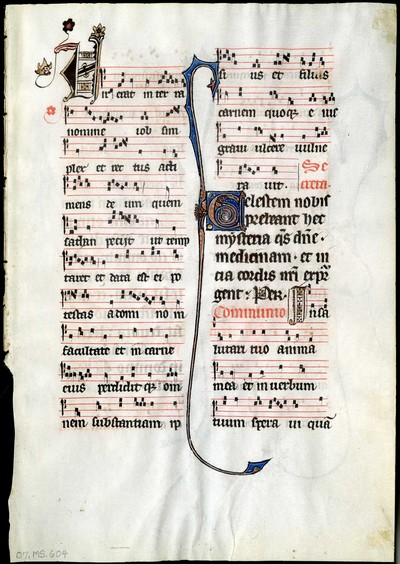 Vir erat in ter ra
nomine iob sim
plex et rec tus ac ti
mens de um quem
sathan peciit ut temp
taret et data est ei po
testas a domi no in
facultate et in carne
eius perdidit qz om
nem substantiam ip
si us et filios
carnem quoqz e ius
graui ulcere uulne
ra uit Se
creta
Celestem nobis
prebeant hec
mysteria qs dne
medicinam et ui
cia cordis nri expur
gent Per
Communio In sa
lutari tuo anima
mea et in uerbum
tuum spera ui qua
07.MS.604